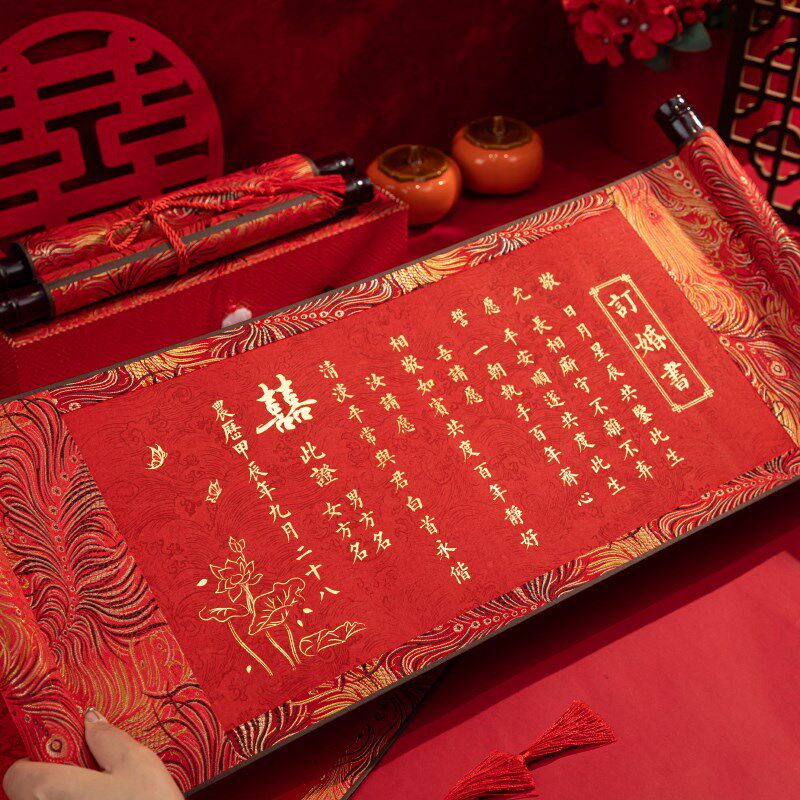 訂婚書
敬日月星辰共鑒此生
允長相廝守不離不弃
愿平安順遂共度此生
誓一朝執手百年齊心
吾請愿
相敬如賓共度百年靜好
汝請愿
清淡平常與君白首永偕
男方名
女方名
此證
囍
農歷甲辰年九月二十八
囍